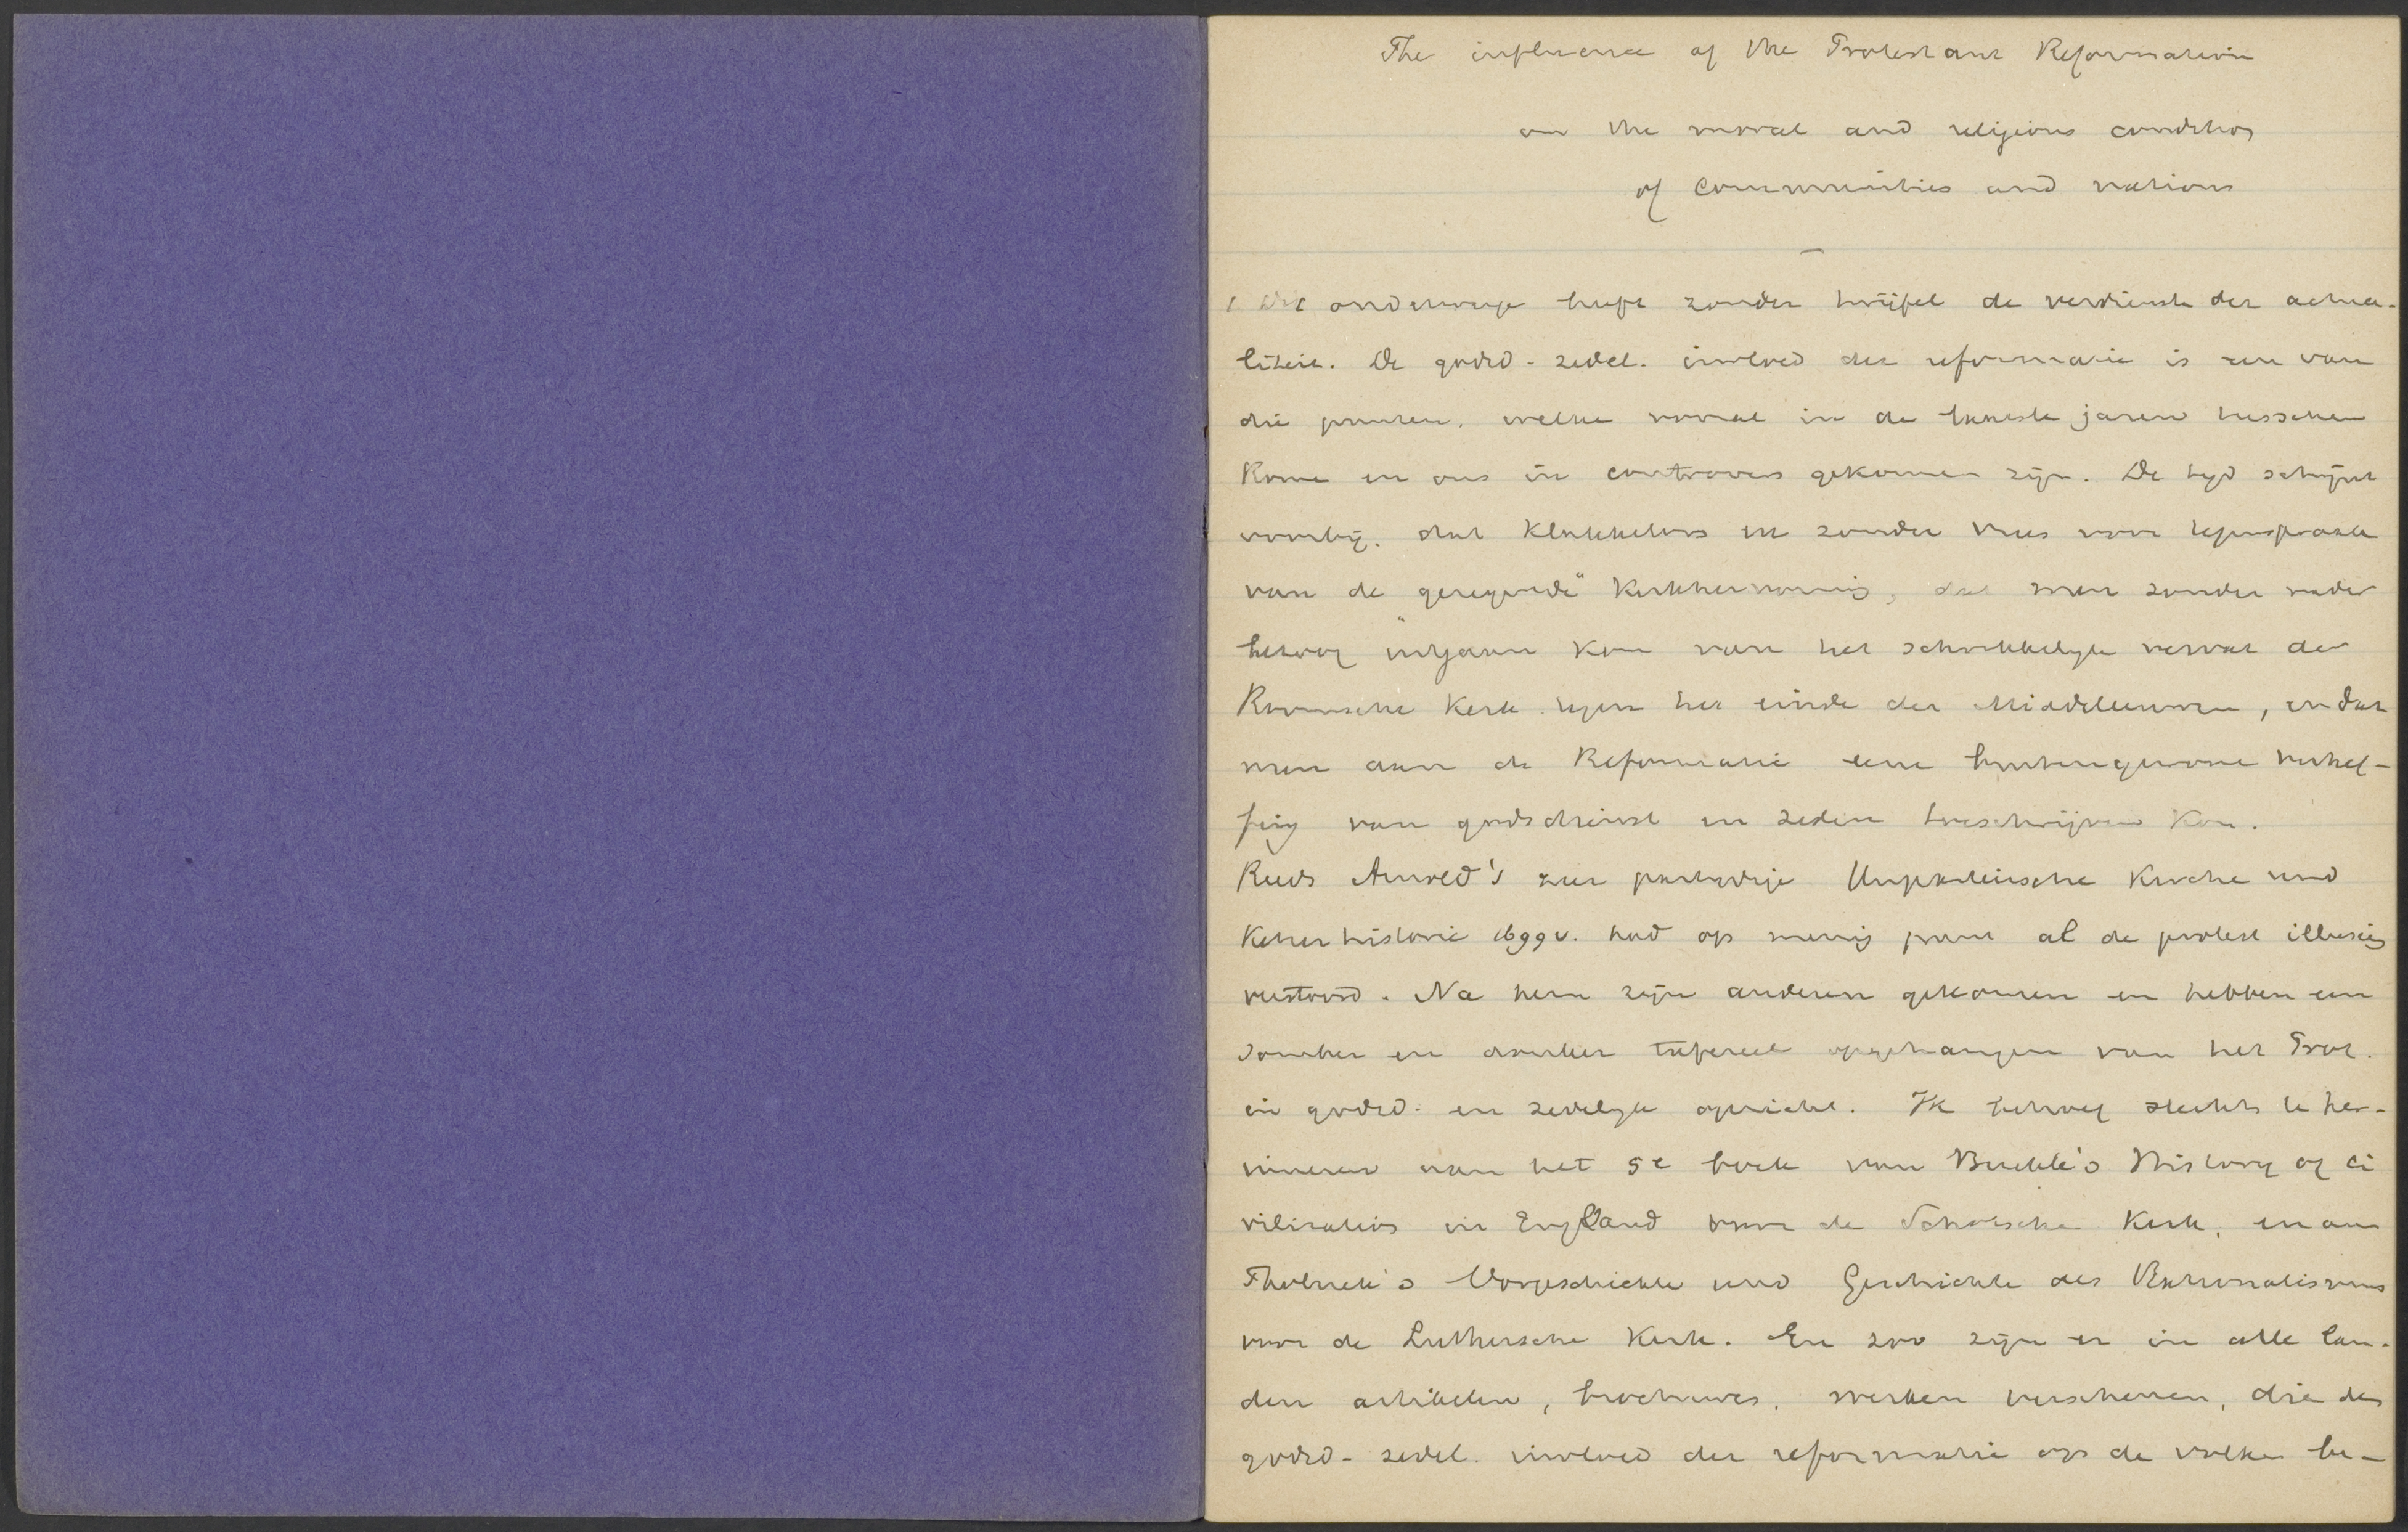 The influence of the Protestant Reformation
on the moral and religious condition
of communities and nations
1. Dit onderwerp heeft zonder twijfel de verdienste der actua-
liteit. De godsd-zedel. invloed der reformatie is een van
die punten, welke vooral in de laatste jaren tusschen
Rome en ons in controvers gekomen zijn. De tijd schijnt
voorbij, dat klakkeloos en zonder vrees voor tegenspraak
van de gezegende kerkhervorming, dat men zonder nader
betoog uitgaan kon van het schrikkelijk verval der
Roomsche Kerk tegen het einde der Middeleeuwen, en dat
men aan de Reformatie eene buitengewone verhef-
fing van godsdienst en zeden toeschrijven kon.
Reeds Arnold's zeer partijdige Unparteiische Kirche und
Ketzerhistorie 1699 v. had op menig punt al de protest illusies
verstoord. Na hem zijn anderen gekomen en hebben een
somber en donker tafereel opgehangen van het Prot.
in godsd. en zedelijk opzicht. Ik behoef slechts te her-
inneren aan het 5e boek van Buckle's History of ci
vilization in England voor de Schotsche Kerk, en aan
Tholuck's Vorgeschichte und Geschichte des Rationalismus
voor de Luthersche Kerk. En zoo zijn er in alle lan-
den artikelen, brochures, werken verschenen, die den
godsd-zedel. invloed der reformatie op de volken be-